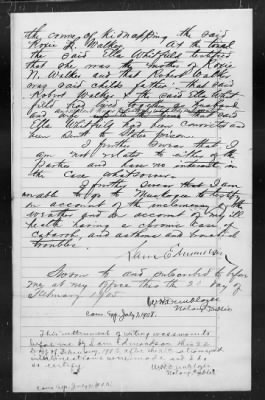 the crime of Kidnapping the said
Roxie N. Walker. At the trial
the said Ella Whitfield testified
that she was the mother of Roxie
N. Walker and that Robert Walker
was said childs father: that said
Robert Walker & the said Ella Whit-
field had lived together as husband
and wife up to the time that said
Ella Whitfield had been convicted and
been sent to States prison.
I further swear that I
am not related to either of the
Parties and have no interest in
the case whatsoever.
I further swear that I am
unable to go to Muskogee to testify
on account of the inclemency of the
weather and on account of my ill
health having a chronic case of
Catarrh, and asthma and bronchial
troubles.
Sworn to and subscribed to before
me at my office this the 20 day of
February 1905
Notary Public
Com Exp. July 7, 1908.
This instrument of writing was
before me by Sam Edmondson this 22
day of February 1905
so certify
Notary Public
Com Exp. July